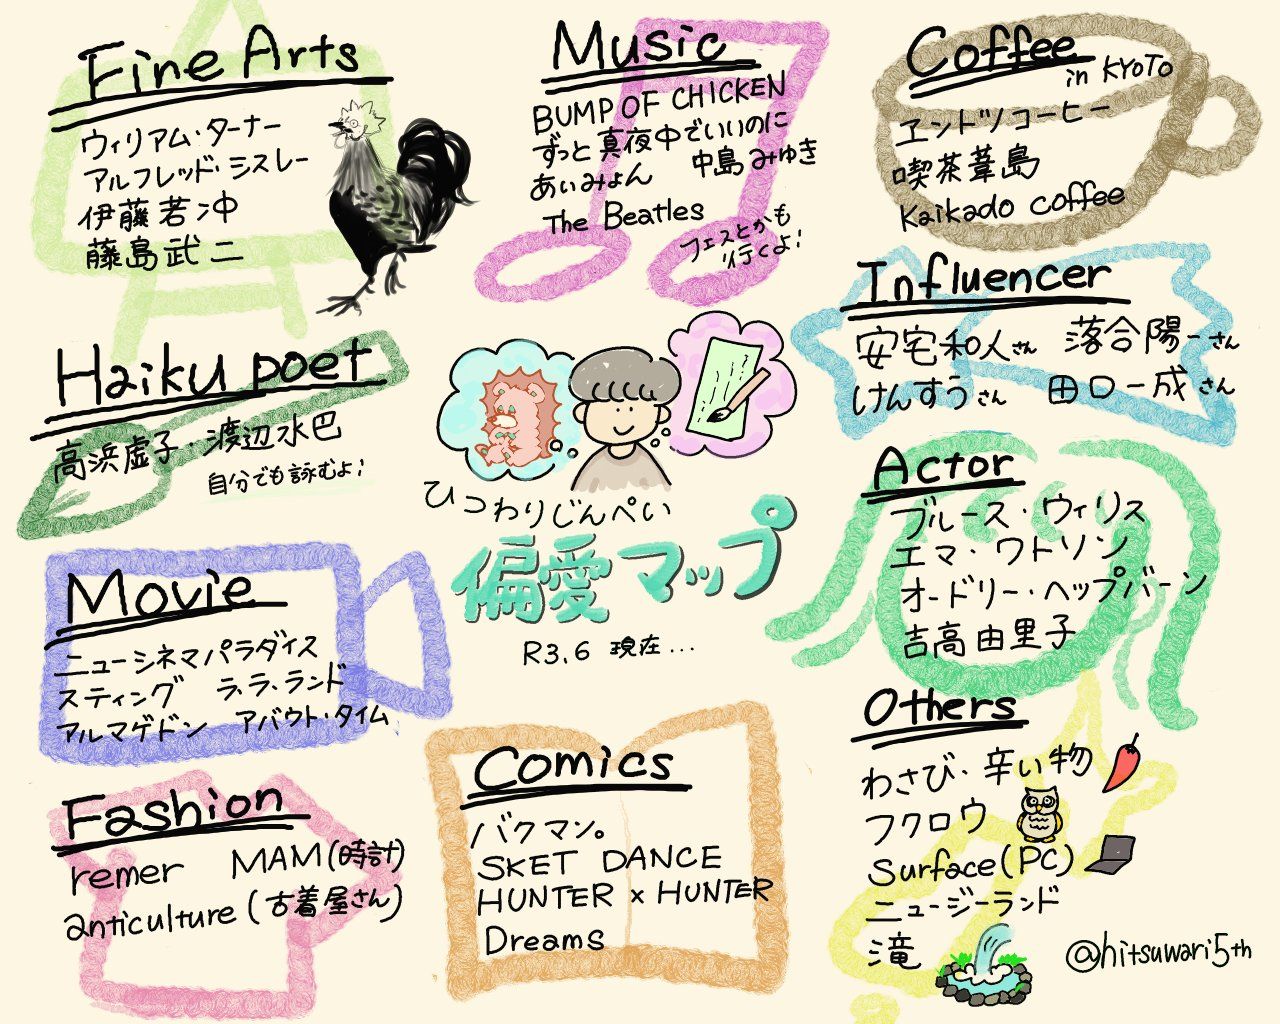 Fine Arts
ウィリアム・ターナー
アルフレッド・シスレー
伊藤若冲
藤島武二
Music
BUMP OF CHICKEN
ずっと真夜中でいいのに
あいみょん 中島みゆき
The Beatles
フェスとかも
行くよ!
Coffee
in KYOTO
ヱントツコーヒー
喫茶葦島
Kaikado coffee
Influencer
安宅和人さん 落合陽一さん
けんすうさん 田口一成さん
Haiku poet
高浜虚子・渡辺水巴
自分でも詠むよ!
ひつわりじんぺい
偏愛マップ
R3.6 現在...
Actor
ブルース・ウィリス
エマ・ワトソン
オードリー・ヘップバーン
吉高由里子
Movie
ニューシネマパラダイス
スティング ラ.ラ.ランド
アルマゲドン アバウト・タイム
Fashion
remer MAM(時計)
anticulture(古着屋さん)
Comics
バクマン。
SKET DANCE
HUNTER×HUNTER
Dreams
Others
わさび・辛い物
フクロウ
Surface(PC)
ニュージーランド
滝
@hitsuwari5th